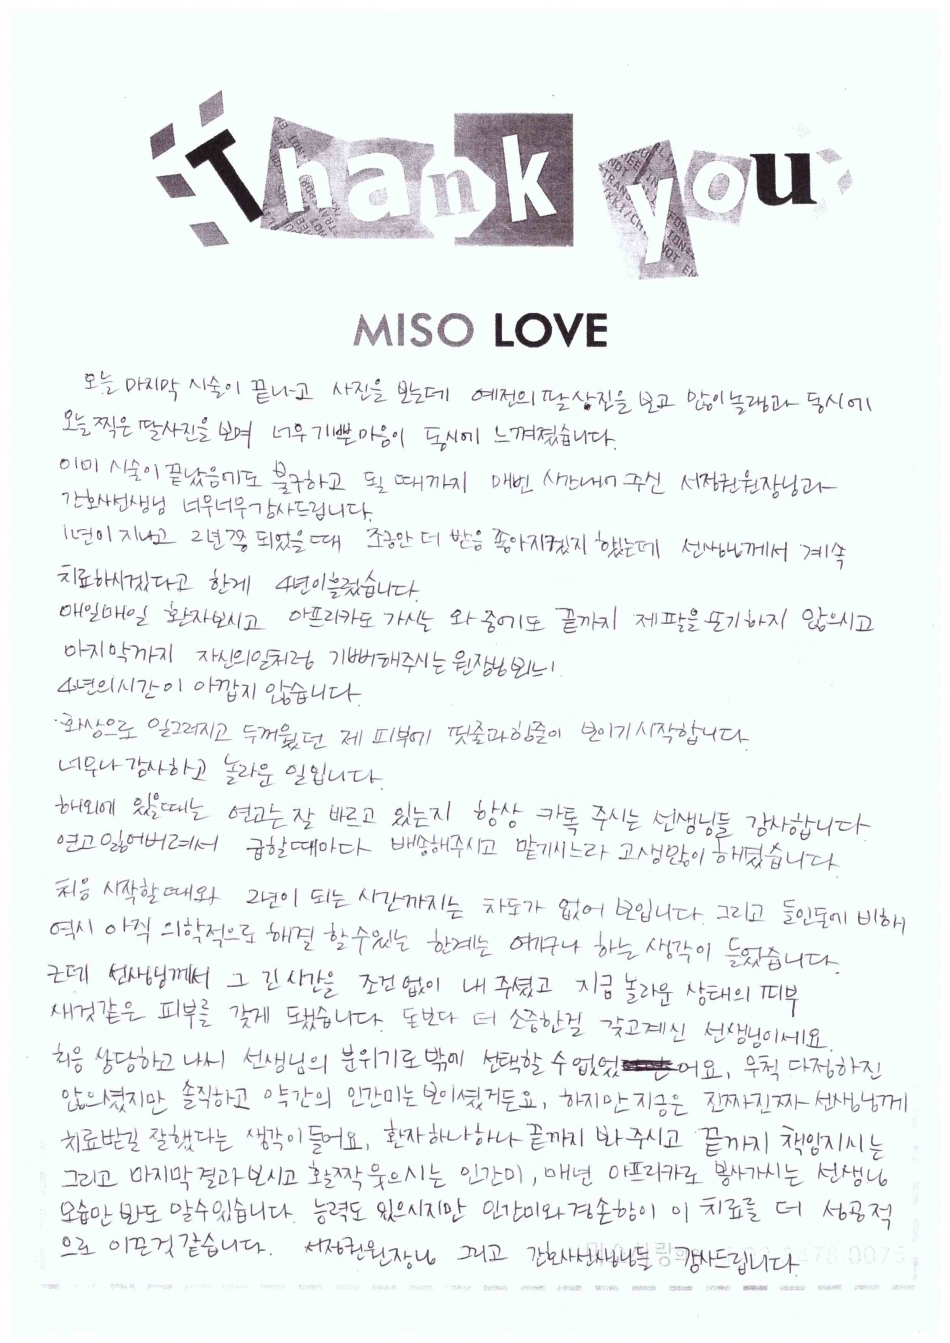 Thank you
MISO LOVE
오늘 마지막 시술이 끝나고 사진을 보는데 예전의 팔 상진을 보고 많이 놀램과 동시에
오늘 찍은 팔사진을 보며 너무 기쁜마음이 동시에 느껴졌습니다.
이미 시술이 끝났음에도 불구하고 될 때까지 매번 시간내어 주신 서정권원장님과
간호사선생님 너무너무 감사드립니다.
1년이 지나고 2년쯤 되었을때 조금만 더 받음 좋아지겠지 했는데 선생님께서 계속
치료하시겠다고 한게 4년이흘렀습니다.
매일매일 환자보시고 아프리카도 가시는 와중에도 끝까지 제팔을 포기하지 않으시고
마지막까지 자신의일처럼 기뻐해주시는 원장님 보니
4년의 시간이 아깝지 않습니다.
화상으로 일그러지고 두꺼웠던 제 피부에 핏줄과힘줄이 보이기 시작합니다.
너무나 감사하고 놀라운 일입니다.
해외에 있을때는 연고는 잘 바르고 있는지 항상 카톡 주시는 선생님들 감사합니다
연고 잃어버려서 급할때마다 배송해주시고 맡기시느라 고생많이 해줬습니다.
처음 시작할때와 2년이 되는 시간까지는 차도가 없어 보입니다. 그리고 들인돈에 비해
역시 아직 의학적으로 해결 할수있는 한계는 여기구나 하는 생각이 들었습니다.
근데 선생님께서 그 긴 시간을 조건없이 내 주셨고 지금 놀라운 상태의 피부
새것같은 피부를 갖게 됐습니다. 돈보다 더 소중한걸 갖고계신 선생님이세요.
처음 상담하고 나서 선생님의 분위기로 밖에 선택할 수 없었어요, 무척 다정하진
않으셨지만 솔직하고 약간의 인간미는보이셨거든요, 하지만 지금은 진짜진짜 선생님께
치료받길 잘했다는 생각이들어요, 환자 하나하나 끝까지 봐 주시고 끝까지 책임지시는
그리고 마지막 결과 보시고 활짝 웃으시는 인간미, 매년 아프리카로 봉사가시는 선생님
모습만 봐도 알수있습니다. 능력도 있으시지만 인간미와겸손함이 이 치료를 더 성공적
으로 이끈것 같습니다. 서정권원장님 그리고 간호사선생님들 감사드립니다.